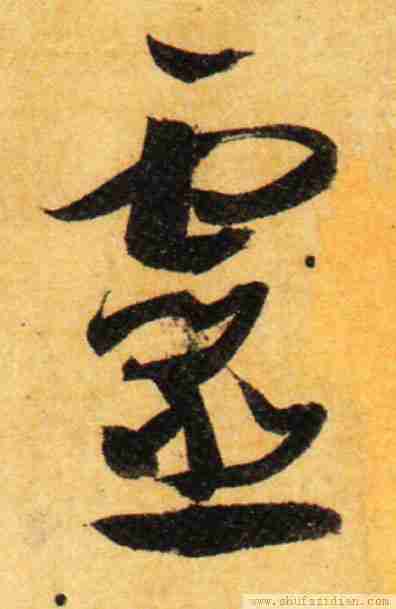 虛
www.shufazidian.com